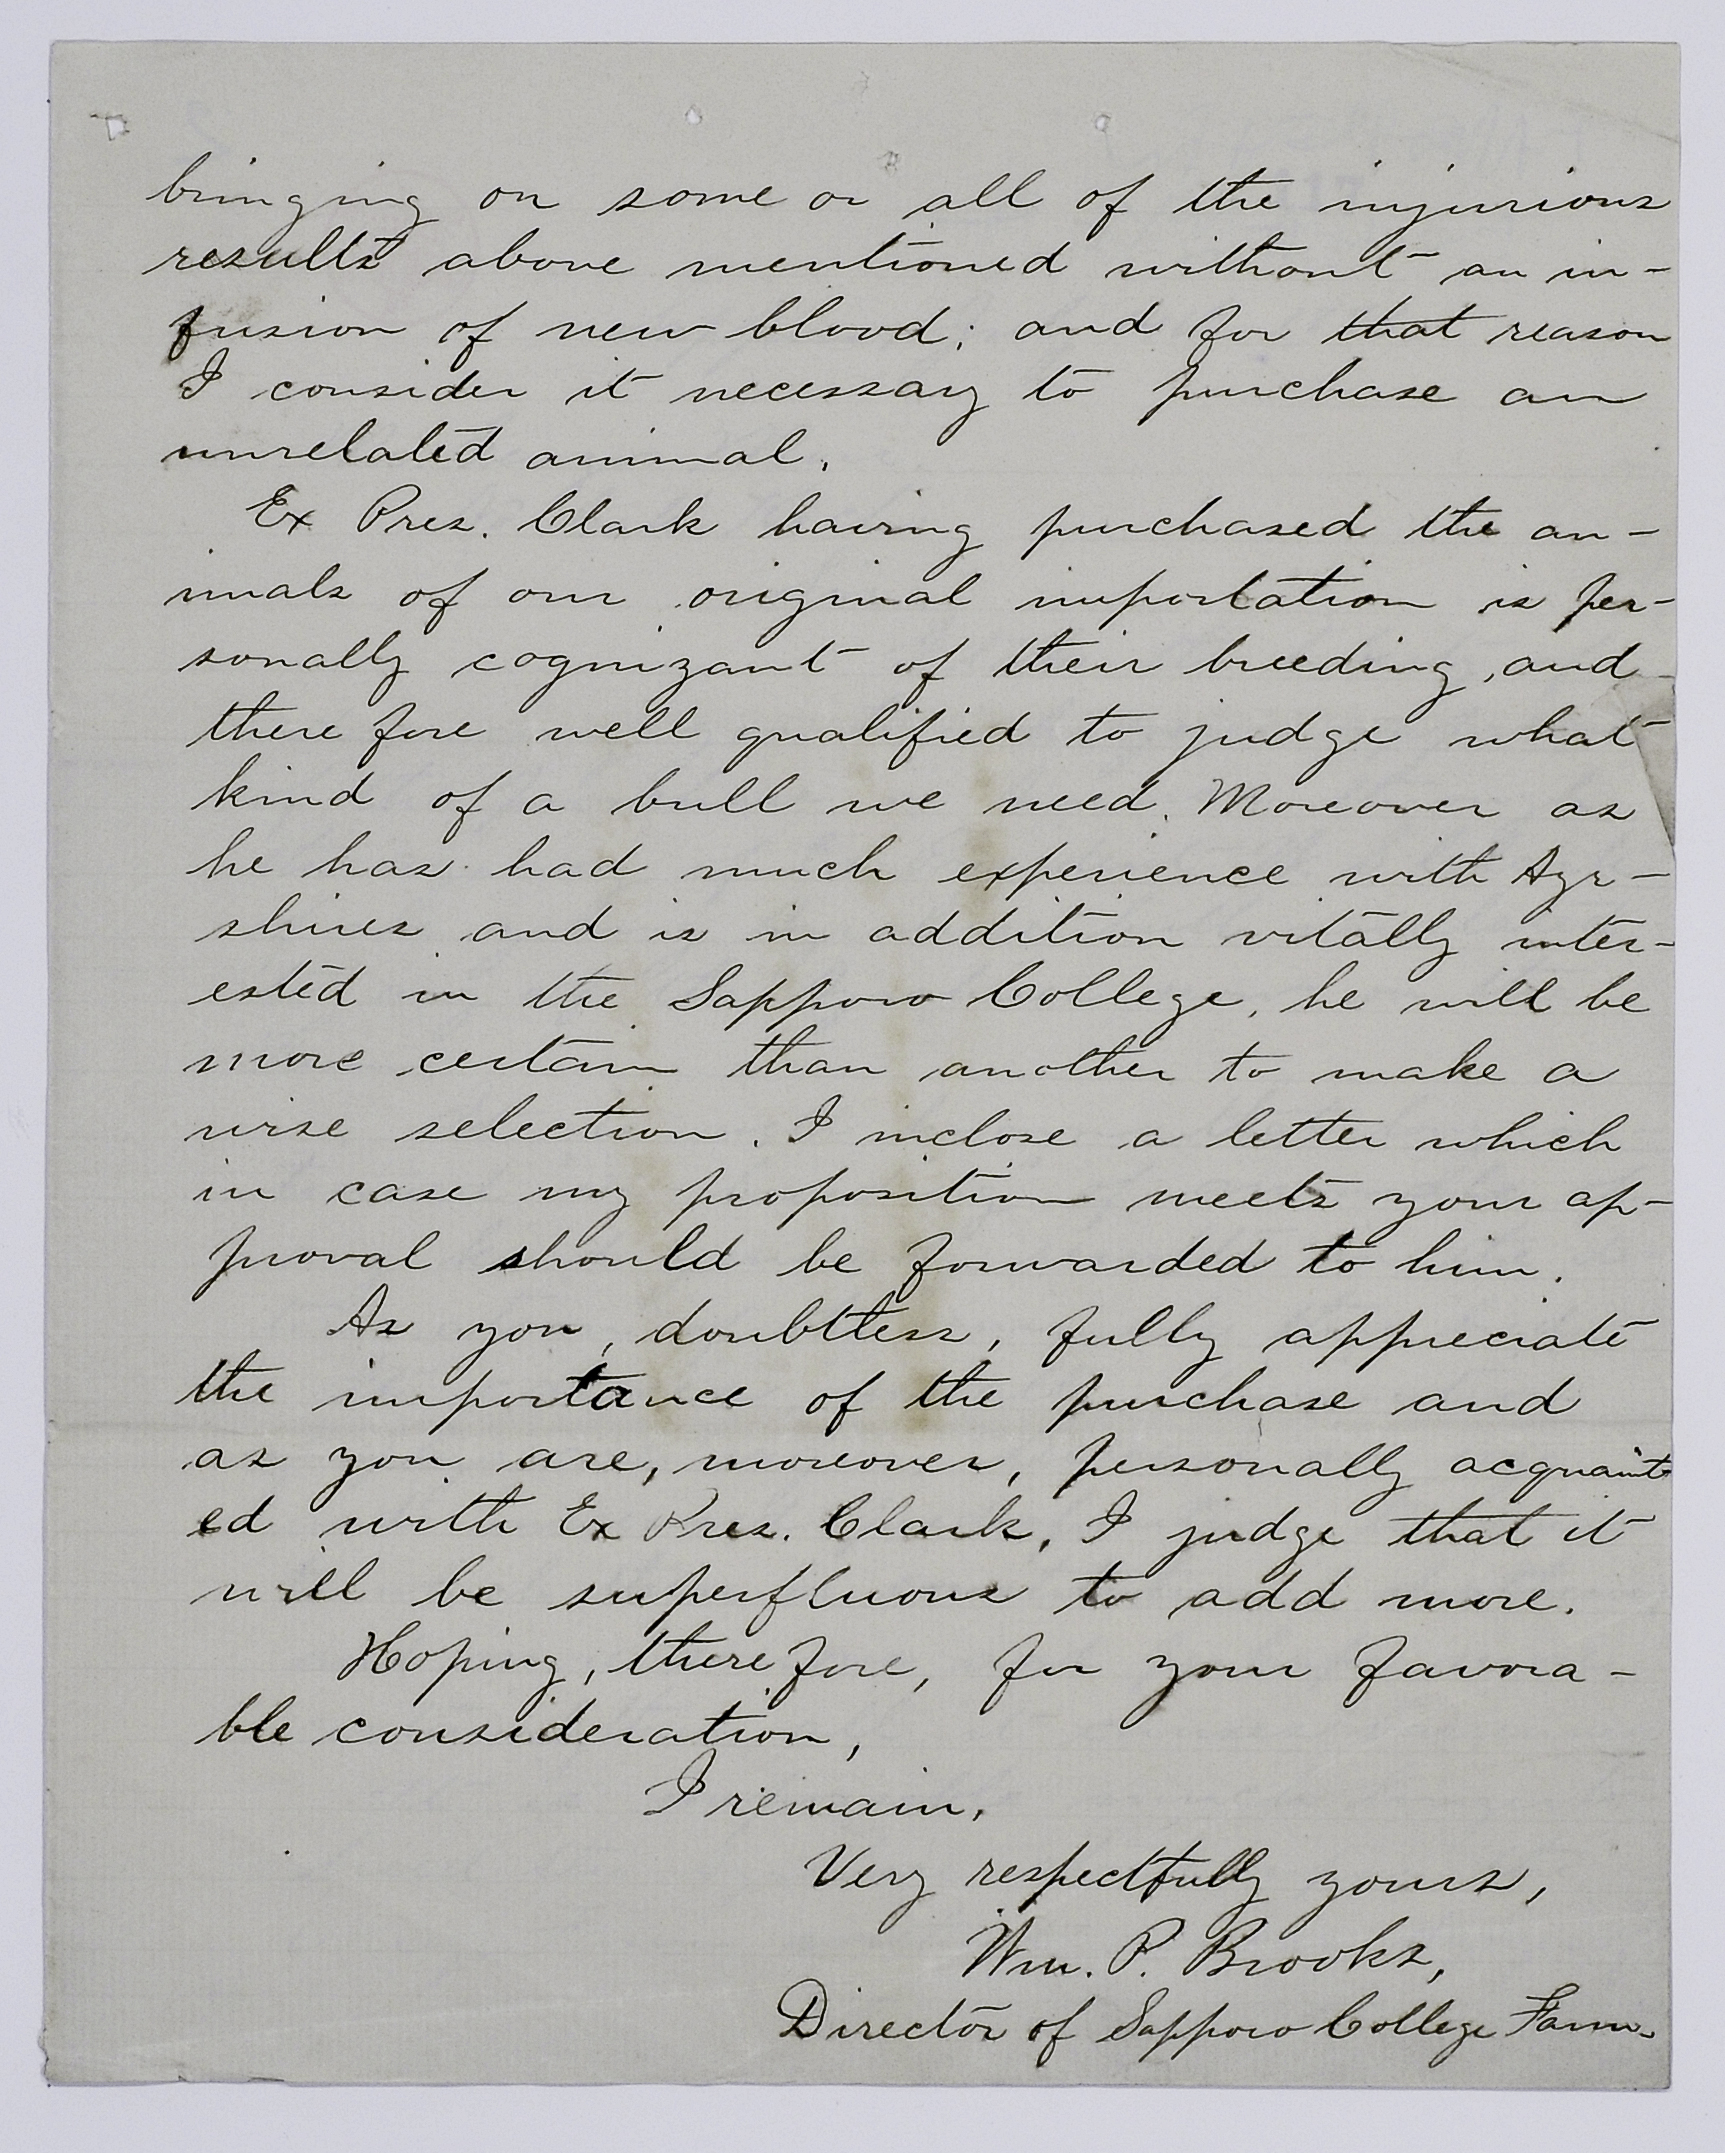 bringing on some or all of the injurious
results above mentioned without an in-
fusion of new blood; and for that reason
I consider it necessary to purchase an
unrelated animal.
Ex Pres. Clark having purchased the an-
imals of our original importation is per-
sonally cognizant of their breeding, and
therefore well qualified to judge what
kind of a bull we need. Moreover as
he has had much experience with Ayr-
shires and is in addition vitally inter-
ested in the Sapporo College, he will be
more certain than another to make a
wise selection. I inclose a letter which
in case my proposition meets your ap-
proval should be forwarded to him.
As you, doubtless, fully appreciate
the importance of the purchase and
as you are, moreover, personally acquaint
ed with Ex Pres. Clark, I judge that it
will be superfluous to add more.
Hoping, therefore, for your favora-
ble consideration,
I remain,
Very respectfully yours,
Wm. P. Brooks,
Director of Sapporo College Farm.